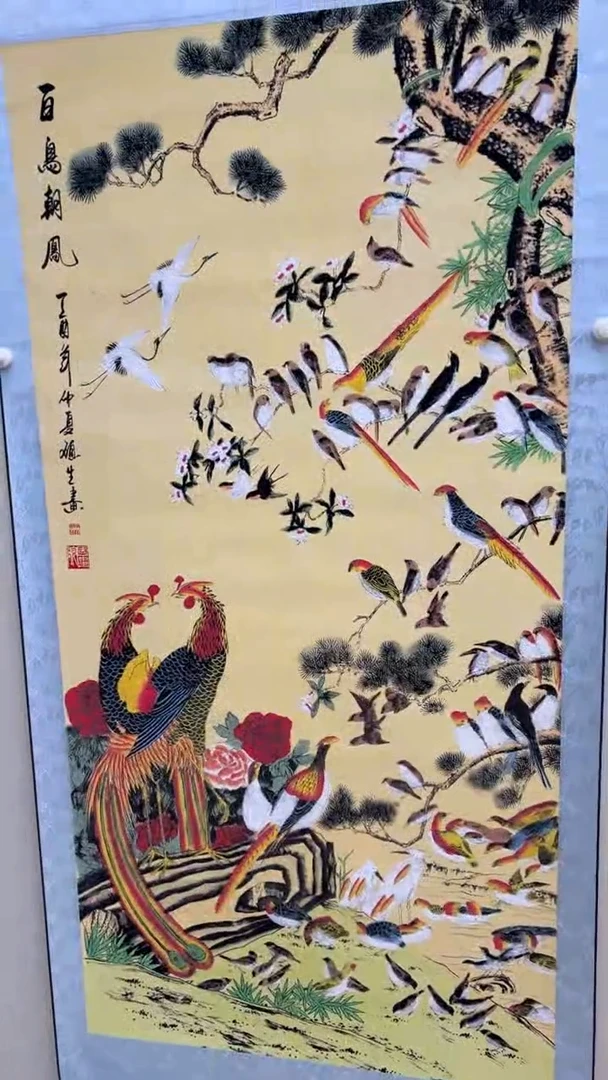 百鳥朝鳳
丁酉年仲夏穗生畫